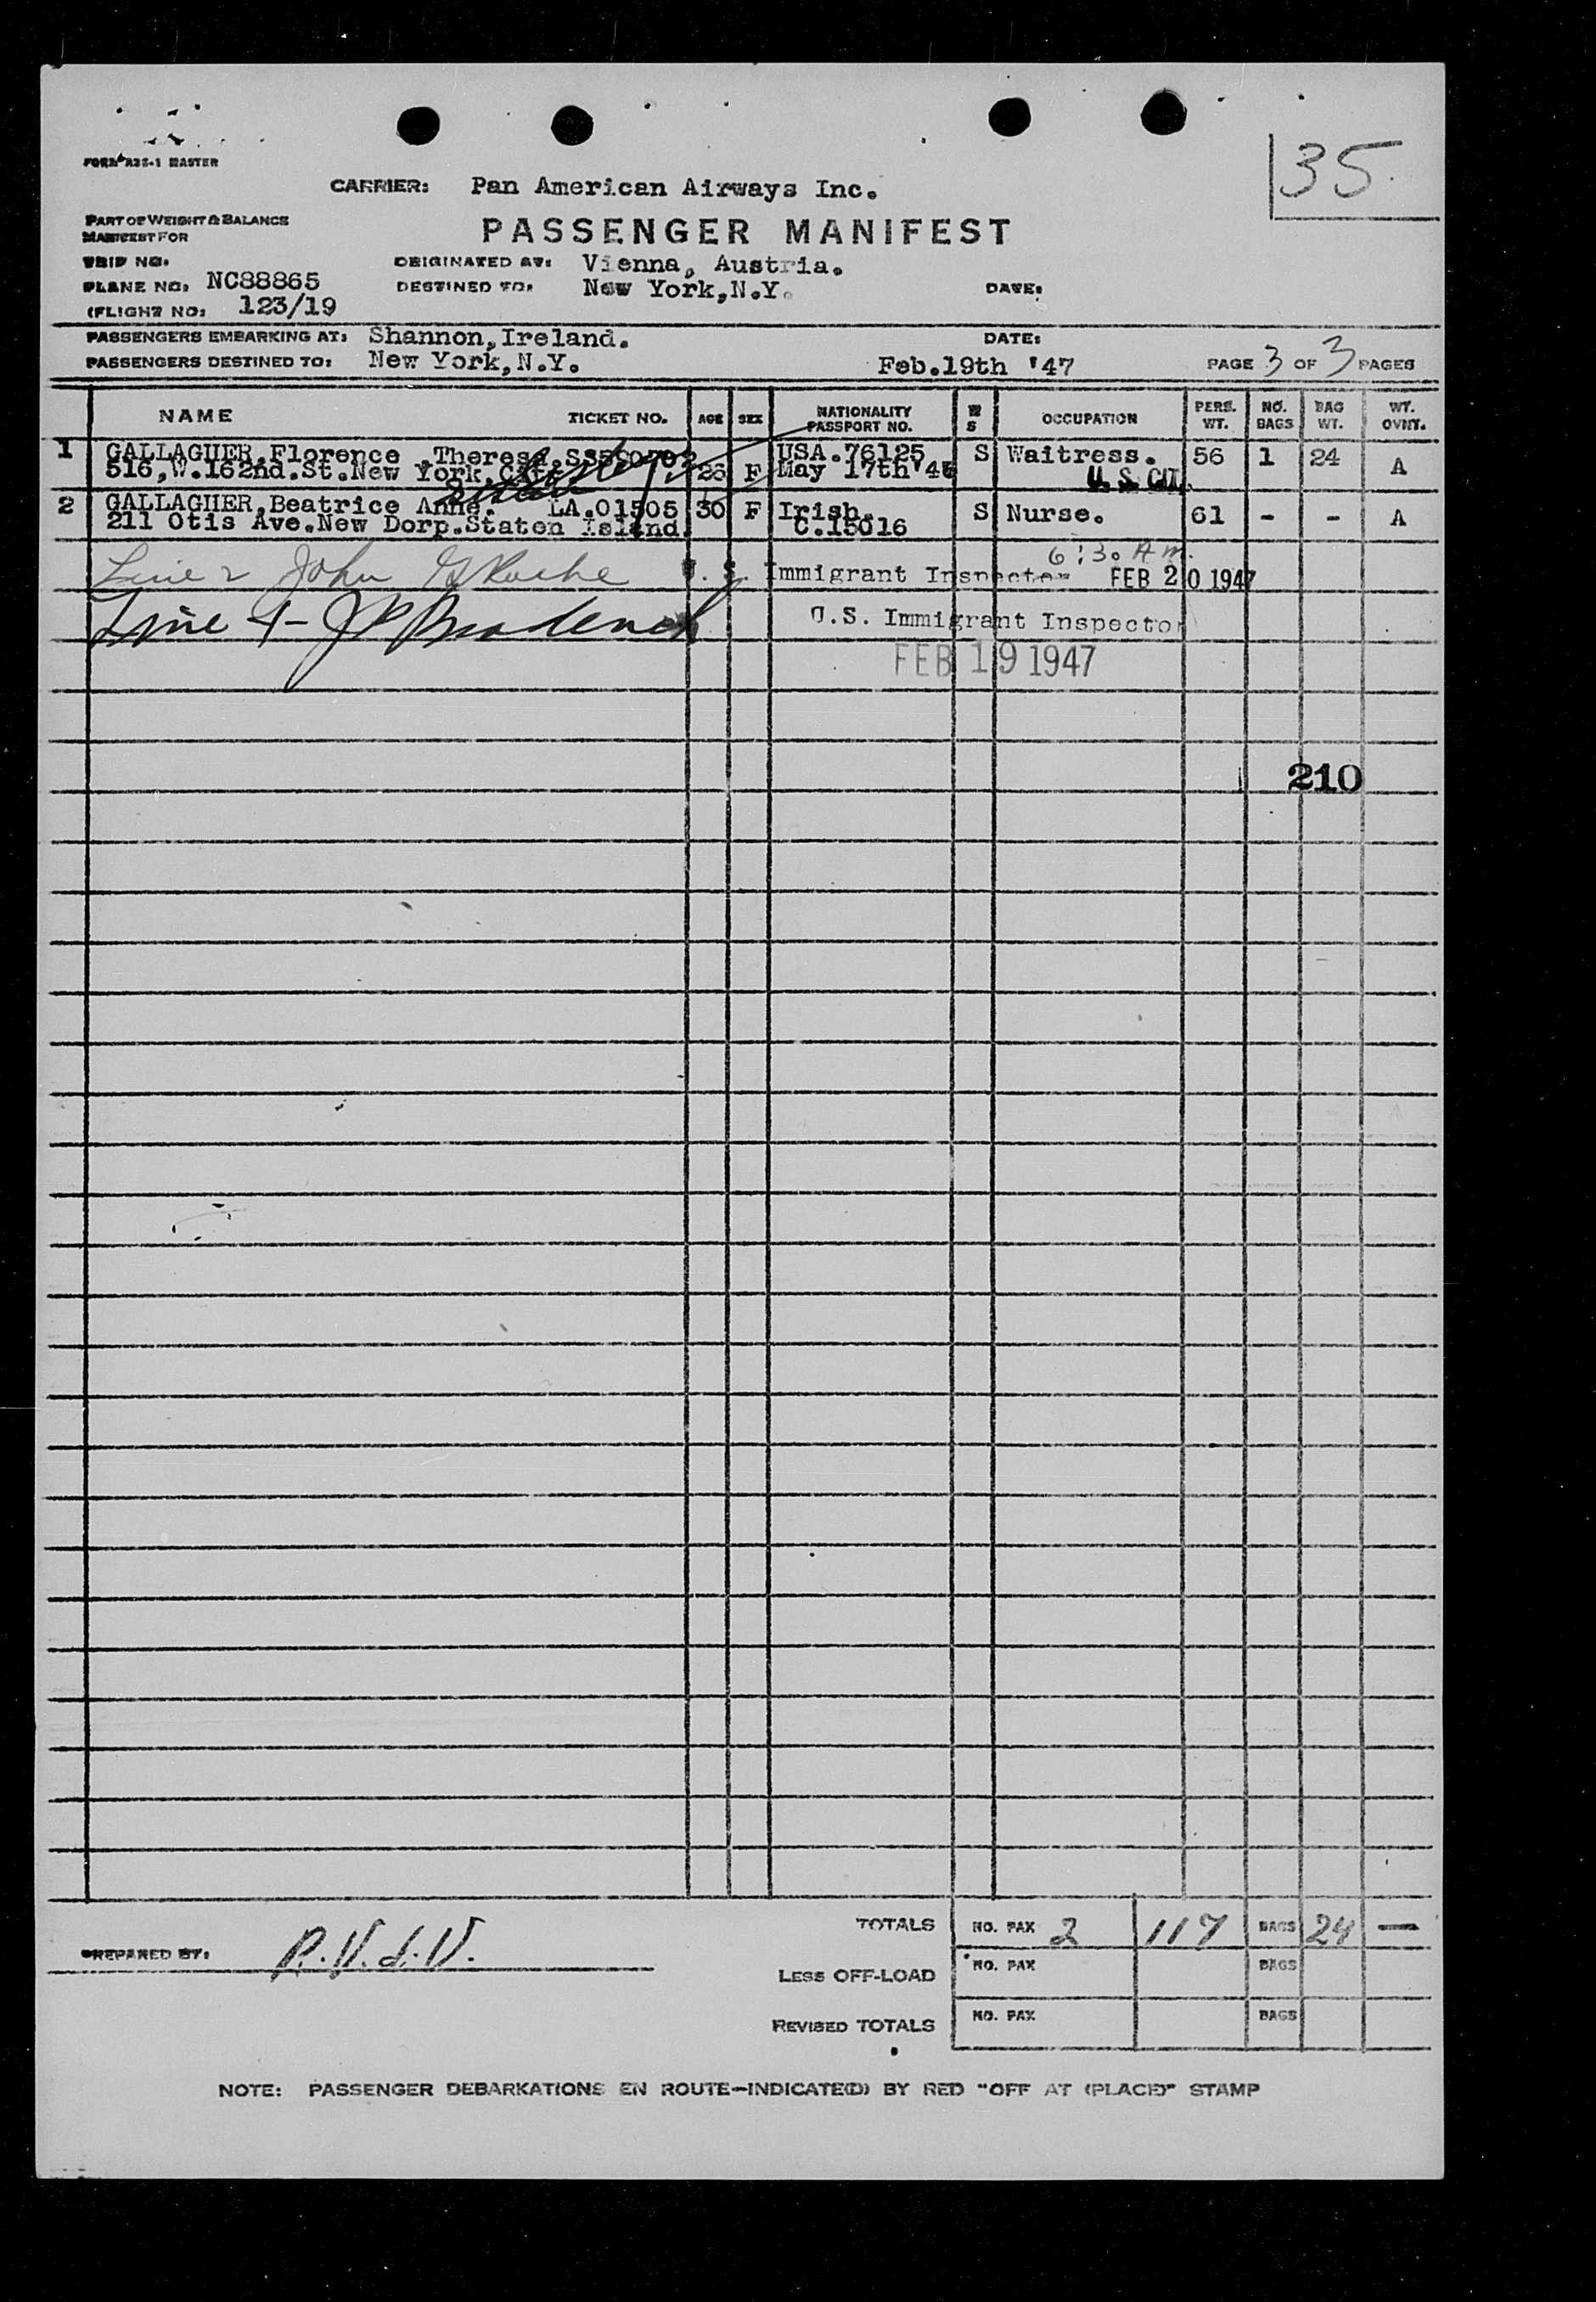 FORM A32-1 MASTER
35
CARRIER: Pan American Airways Inc.
PART OF WEIGHT & BALANCE
MANIFEST FOR
PASSENGER MANIFEST
TRIP NO.
ORIGINATED AT: Vienna, Austria.
PLANE NO: NC88865
DESTINED TO: New York,N.Y.
DATE:
(FLIGHT NO: 123/19
PASSENGERS EMBARKING AT: Shannon,Ireland.
DATE:
PASSENGERS DESTINED TO: New York,N.Y.
Feb.19th '47
PAGE 3 OF 3 PAGES
NAME TICKET NO. AGE SEX NATIONALITY PASSPORT NO. M S OCCUPATION PERS. WT. NO. BAGS BAG WT. WT. OVNT.
1 GALLAGHER,Florence .Theresa. USA.76125 S Waitress. 56 1 24 A
516,W.162nd.St.New York. 26 F May 17th'46 U.S. CIT.
2 GALLAGHER,Beatrice Anne. LA.01505 30 F Irish. S Nurse. 61 - - A
211 Otis Ave.New Dorp.Staten Island. C.15016
6:30 Am.
Line 2 John G Roche U.S. Immigrant Inspector FEB 20 1947
Line 1- U.S. Immigrant Inspector
FEB 19 1947
210
TOTALS NO. PAX 2 117 BAGS 24 —
PREPARED BY:
LESS OFF-LOAD NO. PAX BAGS
REVISED TOTALS NO. PAX BAGS
NOTE: PASSENGER DEBARKATIONS EN ROUTE—INDICATE(D) BY RED "OFF AT (PLACE)" STAMP